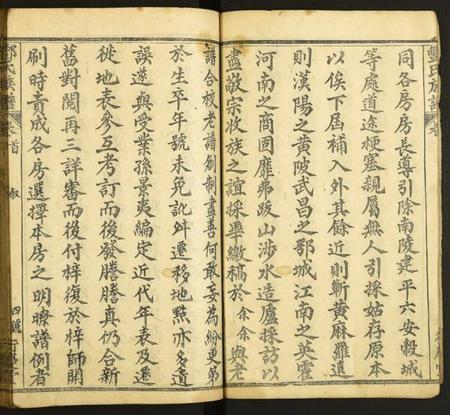 同各房房長尊引除南陵建平六安縠城
等處道途梗塞親屬無人引採姑存原本
以俟下屆補入外其餘近則蘄黃麻羅遠
則漢陽之黃陂武昌之鄂城江南之英霍
河南之商固靡弗跋山涉水造廬採訪以
盡敬宗收族之誼採畢繳稿於余余與老
譜合校老譜創制盡善何敢妄為紛更第
於生卒年號未免訛舛遷移地點亦多遺
誤遂與受業孫景夷編定近代年表及遷
徙地表參互考訂而後發謄謄真仍合新
舊對閱再三詳審而後付梓復於梓師開
刷時責成各房選擇本房之明瞭譜例者
氏族譜
卷首
叙
四號